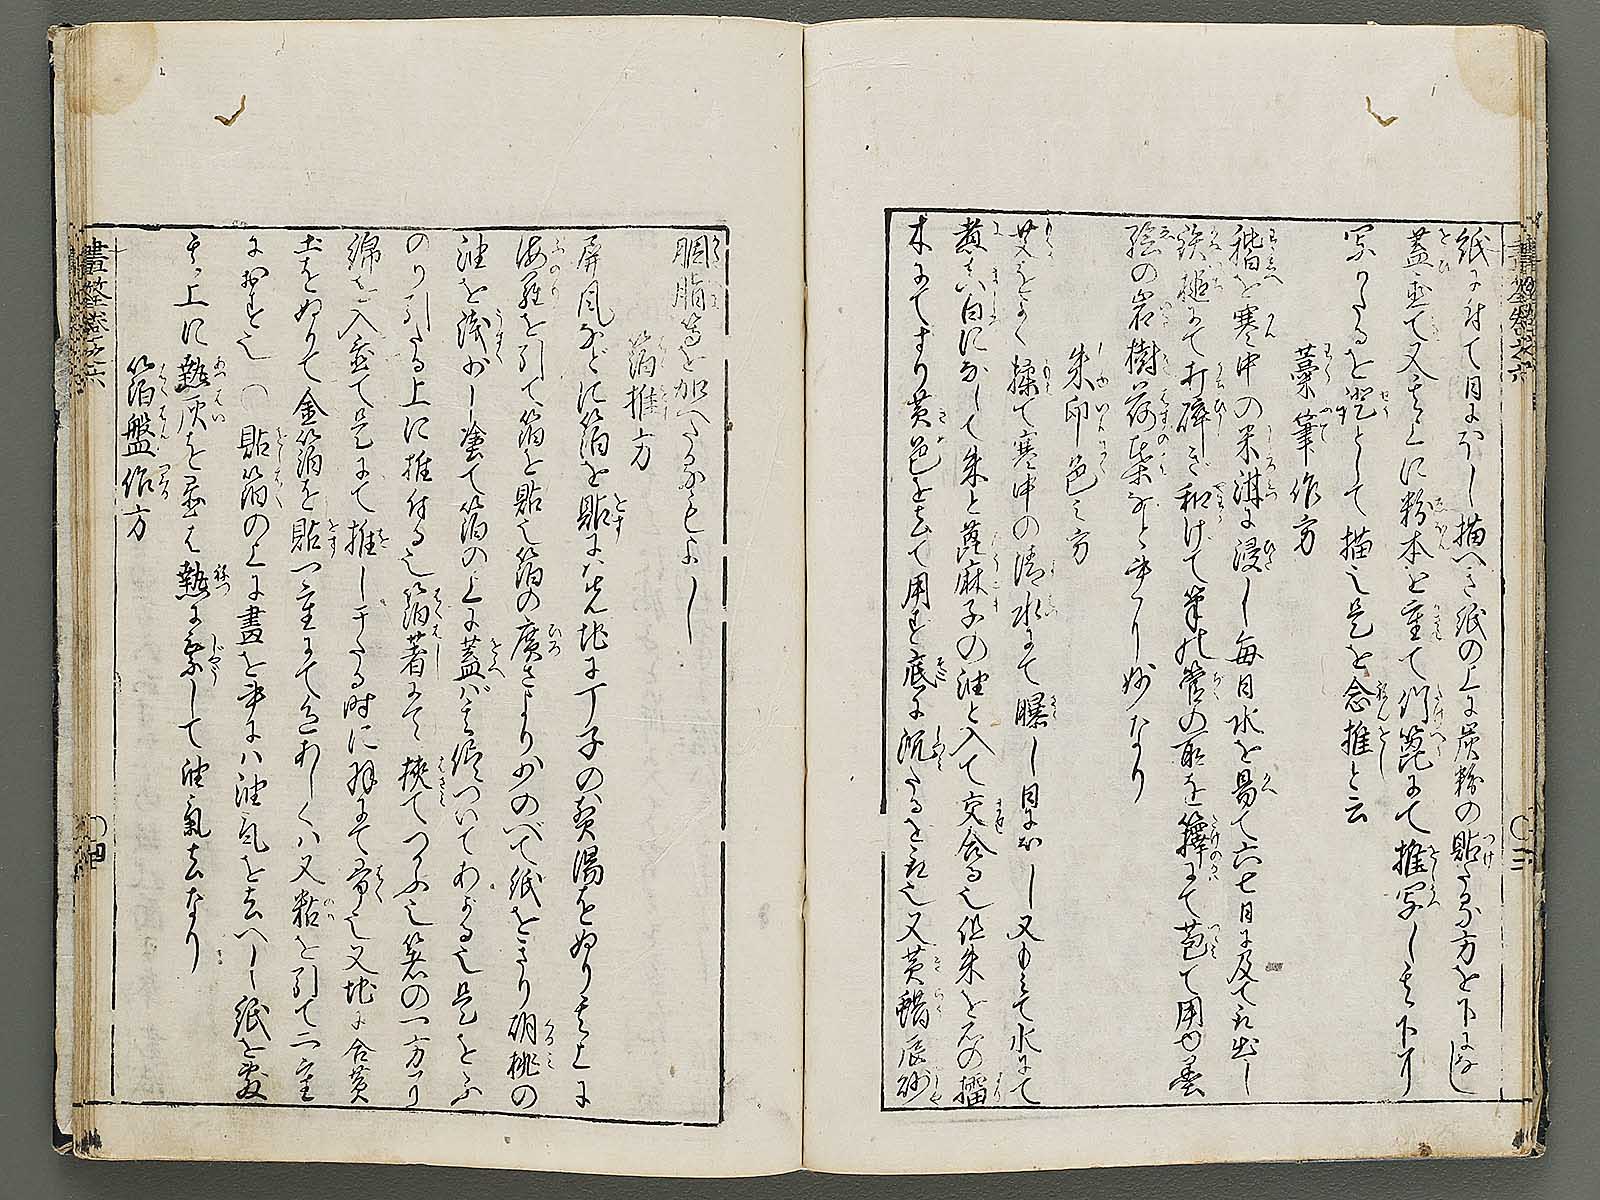 紙に付て日にほし描へき紙の上に炭粉の貼たる方を下になし
蓋置て又其上に粉本を重て竹篦にて推写し其下に
写りたるを證として描也是を念推と云
藁筆作方
稭を寒中の米泔に浸し毎日水を易て六七日に及て取出し
鉄槌にて打碎き和げて筆の管の取を籜にて苞て用ゆ雲
絵の岩樹荷葉など
朱印色之方
艾をよく揉て寒中の清水にて曝し日にほし又もみて水にて
煮真白になして朱と蓖麻子の油と入て交合る也但朱を石の擂
木にてすり黄色を去て用ゆ底に沉たるを取也又黄蝋辰砂
胭脂等を加へたるもよし
箔推方
屏風などに箔を貼には先地に丁子の煎湯をぬり其上に
海羅を引て箔を貼也箔の廣さより少のべて紙をきり胡桃の
油を浅少し塗て箔の上に蓋ば其侭ついてあがる也是をふ
のり引たる上に推付る也箔著にて挾てつかふ也箸の一方に
綿を入置て是にて推し干たる時に羽にて帚也又地に合黄
土をぬりて金箔を貼一重にて色あしくは又粘を引て二重
におすべし
○貼箔の上に畫をかくには油気を去へし紙を敷
其上に熱灰を置は熱に乗して油氣去なり
箔盤作方
畫筌卷之六
○三
畫筌卷之六
○四